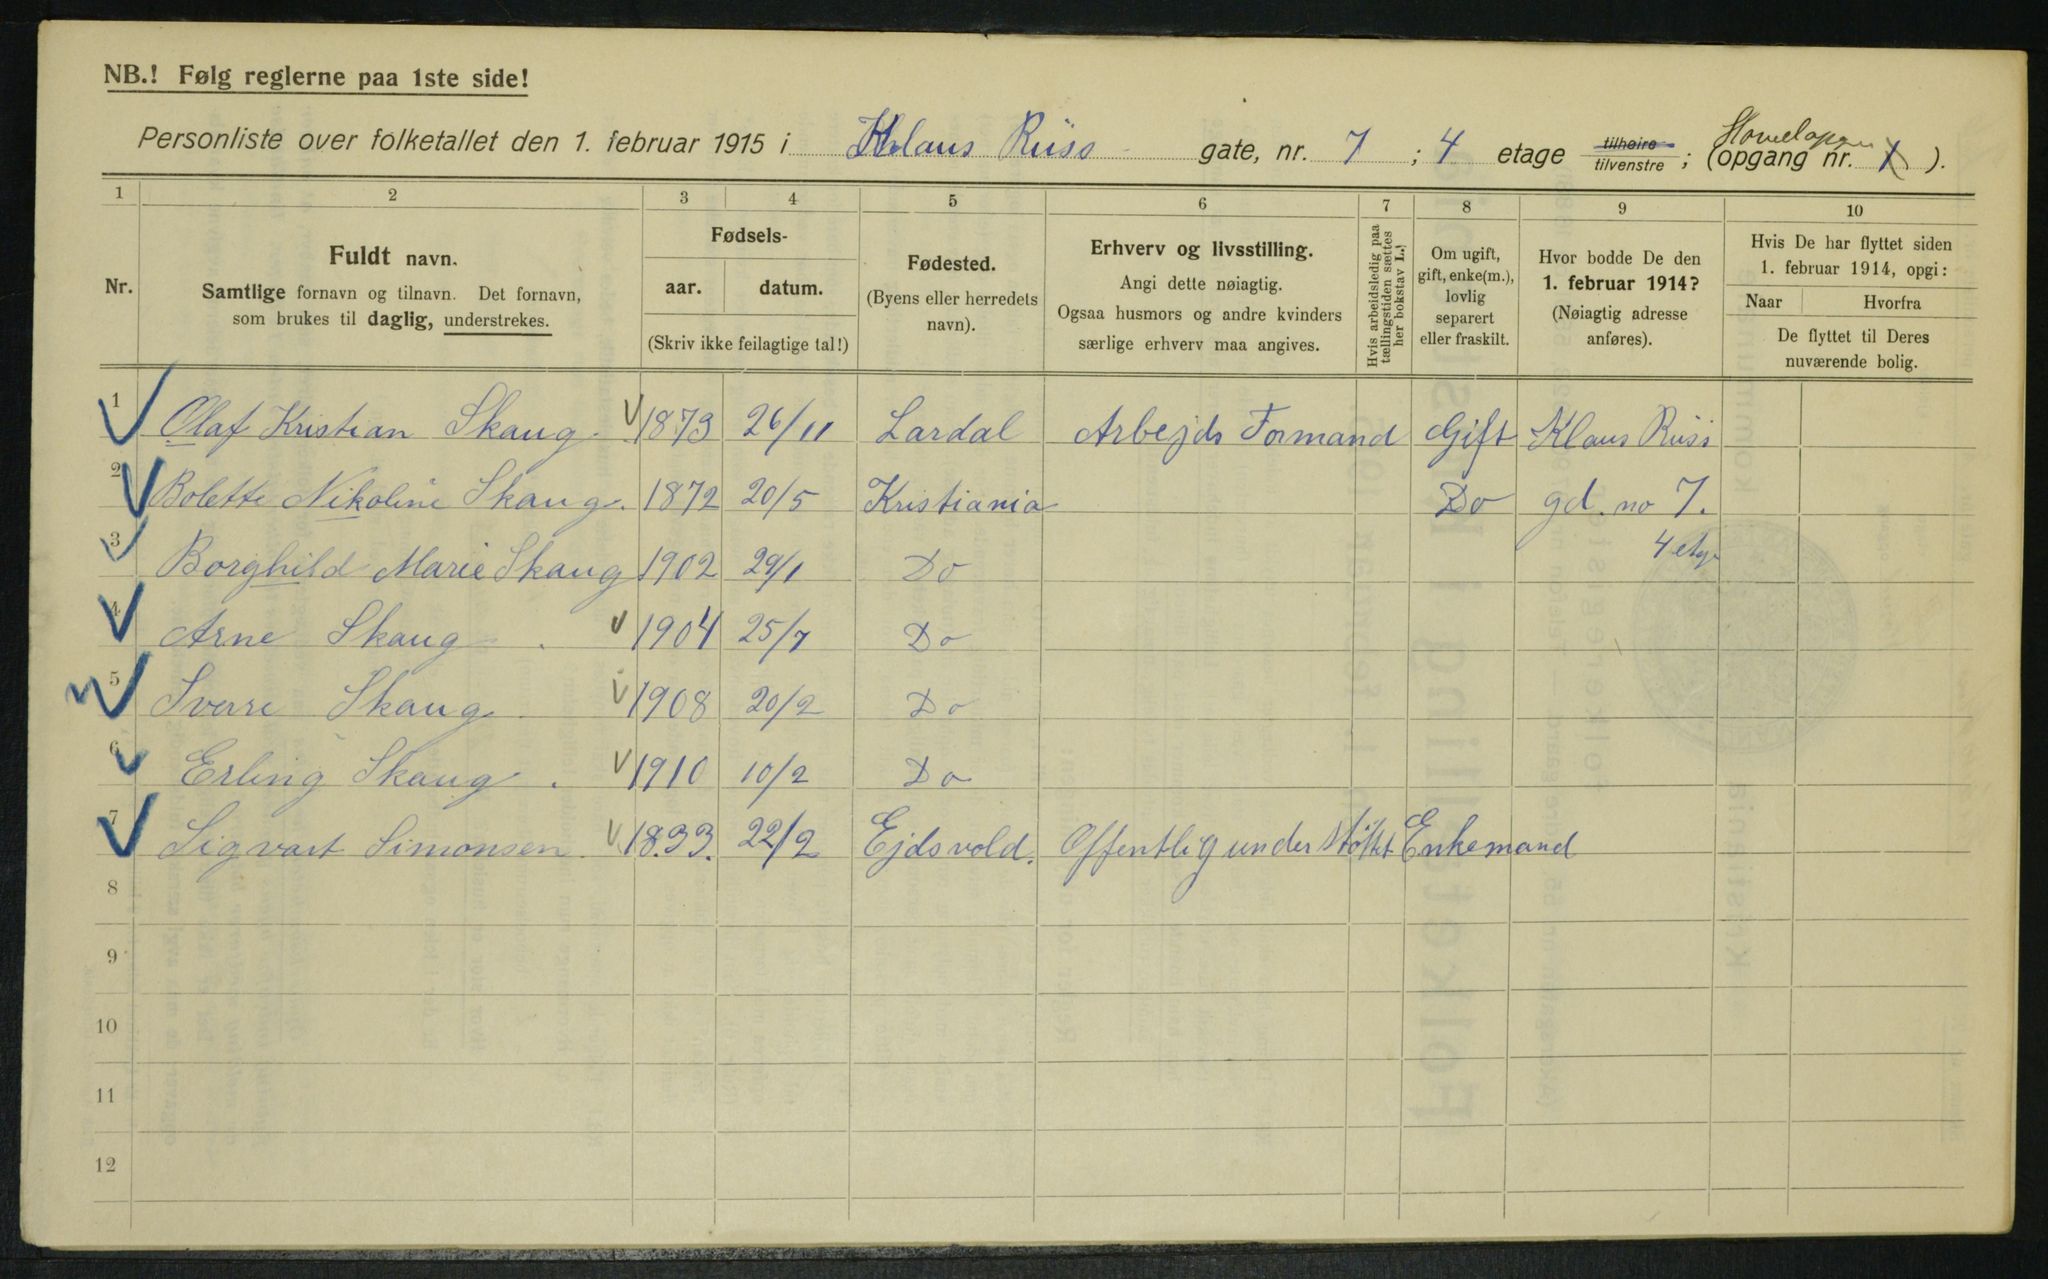 NB.! Følg reglerne paa 1ste side!
Personliste over folketallet den 1. februar 1915 i Klaus Riiss gate, nr. 7 ; 4 etage tilhøire tilvenstre ; (opgang nr. 1 ).
1 2 3 4 5 6 7 8 9 10
Nr.
Fuldt navn.
Samtlige fornavn og tilnavn. Det fornavn,
som brukes til daglig, understrekes.
Fødsels-
aar. datum.
(Skriv ikke feilagtige tal!)
Fødested.
(Byens eller herredets
navn).
Erhverv og livsstilling.
Angi dette nøiagtig.
Ogsaa husmors og andre kvinders
særlige erhverv maa angives.
Hvis arbeidsledig paa
tællingstiden sættes
her bokstav L.!
Om ugift,
gift, enke(m.),
lovlig
separert
eller fraskilt.
Hvor bodde De den
1. februar 1914?
(Nøiagtig adresse
anføres).
Hvis De har flyttet siden
1. februar 1914, opgi:
Naar Hvorfra
De flyttet til Deres
nuværende bolig.
1 Olaf Kristian Skaug 1873 26/11 Lardal Arbejds Formand Gift Klaus Riiss
2 Bolette Nikoline Skaug. 1872 20/5 Kristiania Do gd. no 7.
3 Borghild Marie Skaug 1902 29/1 Do 4 etg
4 Arne Skaug 1904 25/7 Do
5 Sverre Skaug 1908 20/2 Do
6 Erling Skaug 1910 10/2 Do
7 Sigvart Simonsen 1833. 22/2 Ejdsvold. Offentlig understøttet Enkemand
8
9
10
11
12